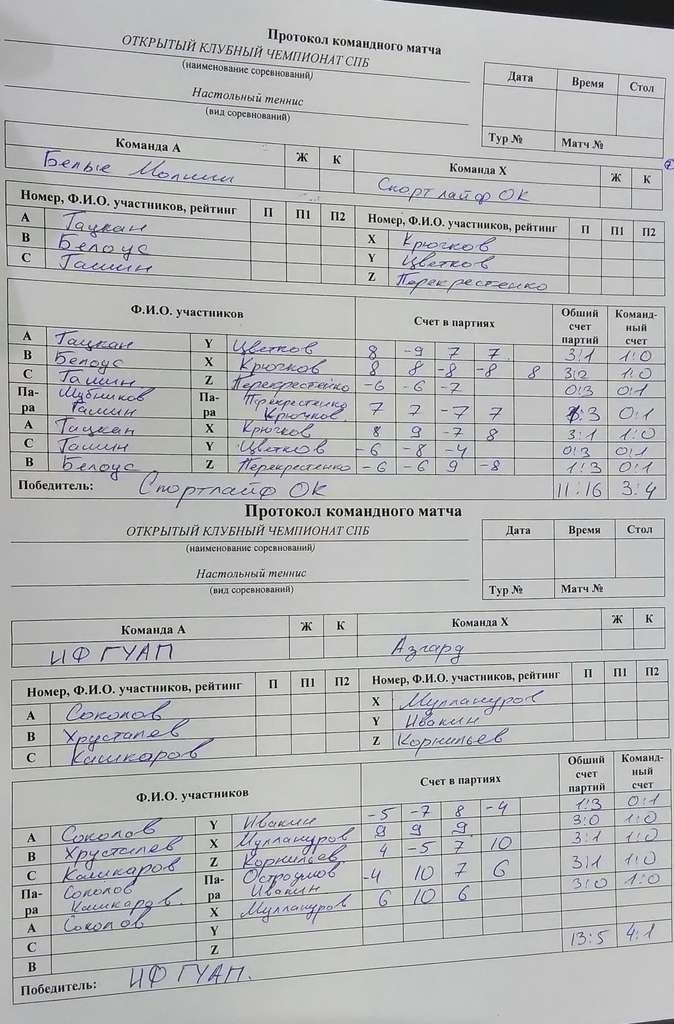 Протокол командного матча
ОТКРЫТЫЙ КЛУБНЫЙ ЧЕМПИОНАТ СПБ
(наименование соревнований)
Настольный теннис
(вид соревнований)
Дата Время Стол
Тур № Матч №
Команда А Ж К Команда Х Ж К
Белые Молнии Спортлайф ОК
Номер, Ф.И.О. участников, рейтинг П П1 П2 Номер, Ф.И.О. участников, рейтинг П П1 П2
А Тацкан X Крючков
В Белоус Y Цветков
С Гамин Z Перекрестенко
Ф.И.О. участников Счет в партиях Общий счет партий Командный счет
А Тацкан Y Цветков 8 -9 7 7 3:1 1:0
В Белоус X Крючков 8 8 -8 -8 8 3:2 1:0
С Гамин Z Перекрестенко -6 -6 -7 0:3 0:1
Па-ра Гамин Па-ра Перекрестенко Крючков 7 7 -7 7 :3 0:1
А Тацкан X Крючков 8 9 -7 8 3:1 1:0
С Гамин Y Цветков -6 -8 -4 0:3 0:1
В Белоус Z Перекрестенко -6 -6 9 -8 1:3 0:1
Победитель: Спортлайф ОК 11:16 3:4
Протокол командного матча
ОТКРЫТЫЙ КЛУБНЫЙ ЧЕМПИОНАТ СПБ
(наименование соревнований)
Настольный теннис
(вид соревнований)
Дата Время Стол
Тур № Матч №
Команда А Ж К Команда Х Ж К
ИФ ГУАП Азгард
Номер, Ф.И.О. участников, рейтинг П П1 П2 Номер, Ф.И.О. участников, рейтинг П П1 П2
А Соколов X Муллануров
В Хрусталев Y Ивакин
С Кашкаров Z Корнильев
Ф.И.О. участников Счет в партиях Общий счет партий Командный счет
А Соколов Y Ивакин -5 -7 8 -4 1:3 0:1
В Хрусталев X Муллануров 9 9 9 3:0 1:0
С Кашкаров Z Корнильев 4 -5 7 10 3:1 1:0
Па-ра Соколов Кашкаров. Па-ра Остроумов Ивакин -4 10 7 6 3:1 1:0
А Соколов X Муллануров 6 10 6 3:0 1:0
С Y
В Z
Победитель: ИФ ГУАП. 13:5 4:1